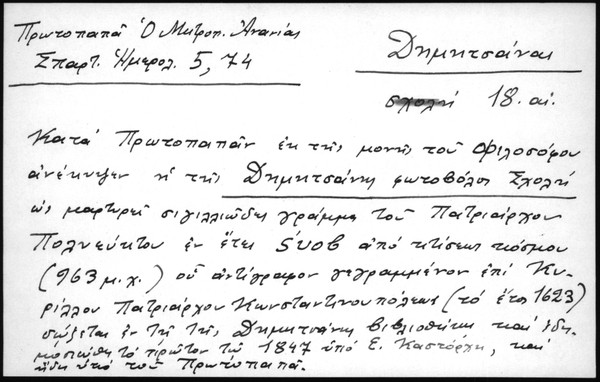 Πρωτοπαπᾶ Ὁ Μητροπ. Ἀνανίας
Σπαρτ. Ἡμερολ. 5, 74
Δημητσάνα
σχολή 18. αἰ.
Κατά Πρωτοπαπᾶν ἐκ τῆς μονῆς τοῦ Φιλοσόφου
ἀνέκυψεν ἡ τῆς Δημητσάνης φωτοβόλος Σχολή
ὡς μαρτυρεῖ σιγιλλιῶδες γράμμα τοῦ Πατριάρχου
Πολυεύκτου ἐν ἔτει ϛυοβ ἀπό κτίσεως κόσμου
(963 μ.χ.) οὗ ἀντίγραφον γεγραμμένον ἐπί Κυ-
ρίλλου Πατριάρχου Κωνσταντινουπόλεως (τό ἔτος 1623)
σώζεται ἐν τῇ τῆς Δημητσάνης βιβλιοθήκῃ καί ἐδη-
μοσιεύθη τό πρῶτον τῷ 1847 ὑπό Ε. Καστόρχη, καί
ἤδη ὑπό τοῦ Πρωτοπαπᾶ.